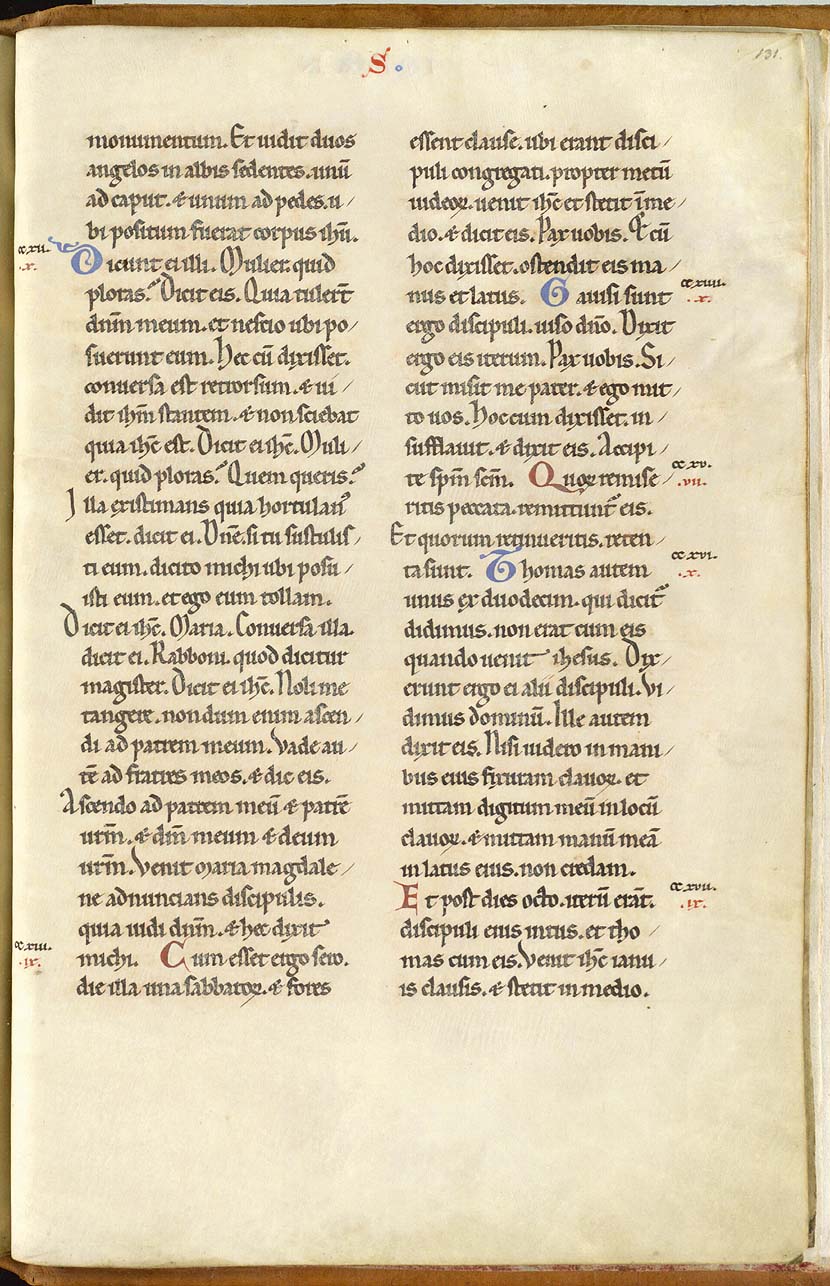 S.
131.
monumentum. Et uidit duos
angelos in albis sedentes. unū
ad caput. & unum ad pedes. u/
bi positum fuerat corpus ihū.
ccxii.
.x.
Dicunt ei illi. Mulier quid
ploras? Dicit eis. Quia tulert̄
dn̄m meum. et nescio ubi po/
suerunt eum. Hec cū dixisset.
conuersa est retrorsum. & ui/
dit ihm̄ stantem. & non sciebat
quia ihc̄ est. Dicit ei ihc̄. Muli/
er. quid ploras? Quem queris?
Illa existimans quia hortulan᾽
esset. dicit ei. Dn̄e. si tu sustulis/
ti eum. dicito michi ubi posu/
isti eum. et ego eum tollam.
Dicit ei ihc̄. Maria. Conuersa illa.
dicit ei. Rabboni. quod dicitur
magister. Dicit ei ihc̄. Noli me
tangere. non dum enim ascen/
di ad patrem meum. Vade au/
tē ad fratres meos. & dic eis.
Ascendo ad patrem meū & patrē
urm̄. & dm̄ meum & deum
urm̄. Venit maria magdale/
ne adnuncians discipulis.
quia uidi dn̄m. & hec dixit
ccxiii.
.ix.
michi. Cum esset ergo sero.
die illa una sabbatoꝝ. & fores
essent clause. ubi erant disci/
puli congregati. propter metū
iudeoꝝ. uenit ihc̄ et stetit ī me/
dio. & dicit eis. Pax uobis. Et cū
hoc dixisset. ostendit eis ma/
nus et latus. Gauisi sunt
ccxiiii.
.x.
ergo discipuli. uiso dn̄o. Dixit
ergo eis iterum. Pax uobis. Si/
cut misit me pater. & ego mit/
to uos. Hoc cum dixisset. in/
sufflauit. & dixit eis. Accipi/
te spm̄ scm̄. Quoꝝ remise/
ccxv.
.vii.
ritis peccata. remittunt᾽ eis.
Et quorum retinueritis. reten/
ta sunt. Thomas autem
ccxvi.
.x.
unus ex duodecim. qui dicit᾽
didimus. non erat cum eis
quando uenit ihesus. Dix/
erunt ergo ei alii discipuli. Vi/
dimus dominū. Ille autem
dixit eis. Nisi uidero in mani/
bus eius fixuram clauoꝝ. et
mittam digitum meū in locū
clauoꝝ. & mittam manū meā
in latus eius. non credam.
Et post dies octo. iterū erāt.
ccxvii.
.ix.
discipuli eius intus. et tho/
mas cum eis. Venit ihc̄ ianu/
is clausis. & stetit in medio.